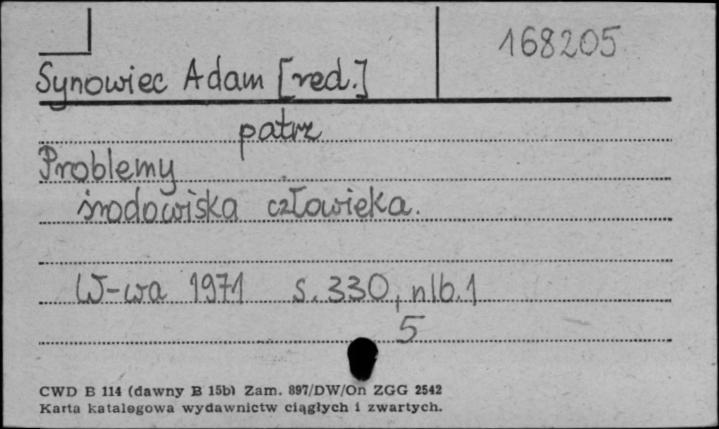 168205
Synowiec Adam [red.]
patrz
Problemy
środowiska człowieka.
W-wa 1971 s. 330, nlb. 1
5
CWD B 114 (dawny B 15b) Zam. 897/DW/On ZGG 2542
Karta katalogowa wydawnictw ciągłych i zwartych.